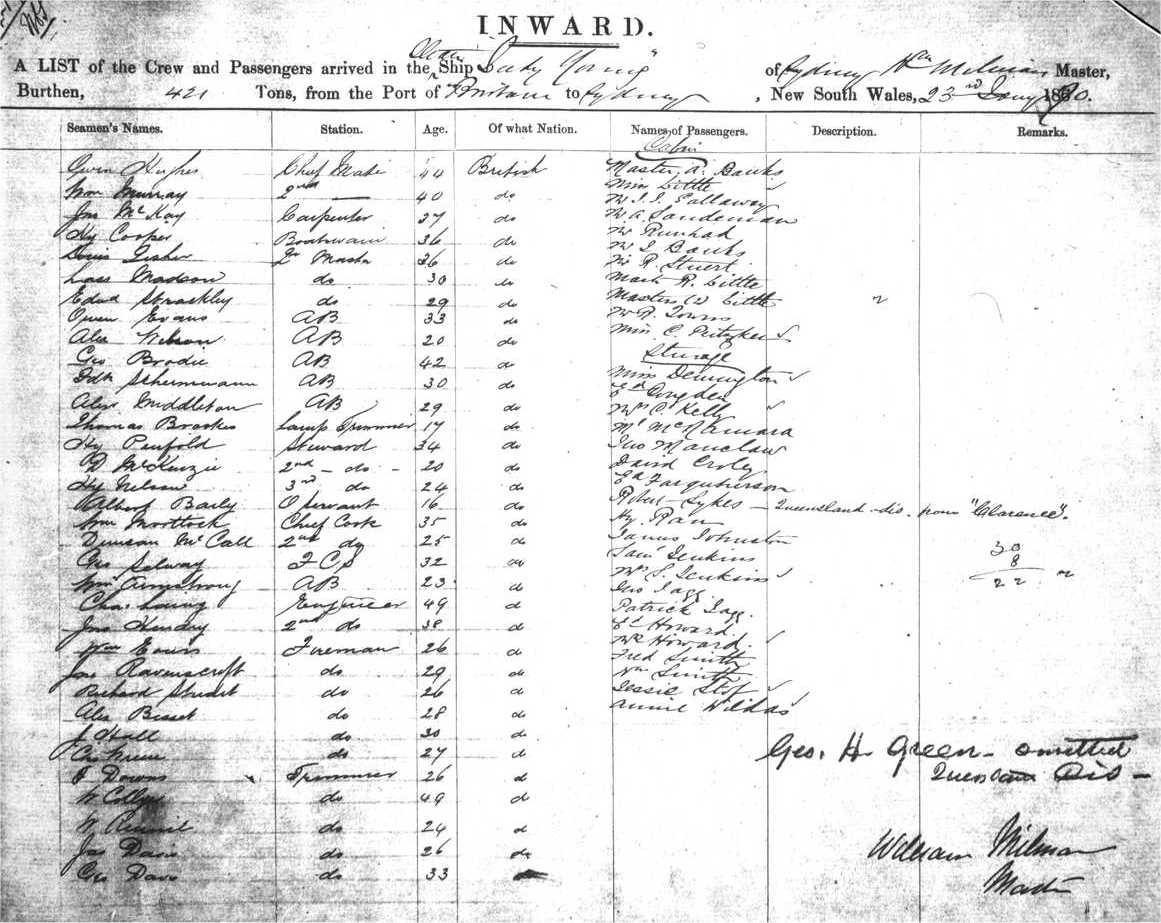 INWARD.
A LIST of the Crew and Passengers arrived in the Ship "Lady Young" of Sydney Wm Milman Master,
Burthen, 421 Tons, from the Port of Brisbane to Sydney, New South Wales, 23rd Jany 1880.
Seamen's Names. Station. Age. Of what Nation. Names of Passengers. Description. Remarks.
Cabin
Owen Hughes Chief Mate 44 British Master A. Banks
Wm Murray 2nd — 40 do Miss Little
Jno McKay Carpenter 37 do Mr J. J. Gallaway
Hy Cooper Boatswain 36 do Mr A. Sandeman
Fisher 36 do Mr
Lars Madson do 30 do Mr Banks
Edwd do 29 do Mr R. Stuart
Owen Evans AB 33 do R. Little
Alex Wilson AB 20 do Masters (2) Little
Geo Brodie AB 42 do Mr R. Towns
AB 30 do Miss C.
Alex Middleton AB 29 do Steerage
Thomas Brookes Lamp Trimmer 17 do Miss Dennington
Hy Penfold Steward 34 do Ed Congden
D McKenzie 2nd - do - 20 do Mrs C. Kelly
Hy Nelson 3rd do 24 do Mr McNamara
Albert Baily O Servant 16 do Jno
Wm Mortlock Chief Cook 35 do David Croly
Duncan McCall 2nd do 25 do Ed Farquharson
Geo Selway F C S 32 do Robert Sykes — Queensland - dis. from "Clarence".
Wm Armstrong AB 23 do Hy. Ran
Chas Engineer 49 do James Johnston
Jno Hendry 2nd do 38 do Saml Jenkins
Wm Fireman 26 do Mrs S. Jenkins
Jas Ravenscroft do 29 do Jno Tagg
Richard do 26 do Patrick Tagg.
Alex Bisset do 28 do Howard.
J Hall do 30 do Howard.
Chs do 27 do Fred Smith
J Downs Trimmer 26 do Wm Smith
W do 49 d Jessie
W do 24 d Annie
Jas Davis do 26 do
Geo Davis do 33
30
8
22
Geo. H Green - omitted
Dis -
William Milman
Master